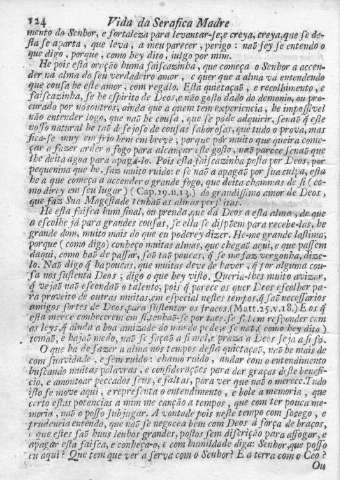 124 Vida da Serafica Madre
mento do Senhor, e fortaleza para levantar-se, e creya, creya, que se de-
sta se aparta, que leva, a meu parecer, perigo: naõ sey se entendo o
que digo, porque, como hey dito, julgo por mim.
He pois esta oraçaõ huma faiscazinha, que começa o Senhor a accen-
der na alma do seu verdadeiro amor, e quer que a alma vá entendendo
que cousa he este amor, com regalo. Esta quietaçaõ, e recolhimento, e
faiscazinha, se he espirito de Deos, e naõ gosto dado do demonio, ou pro-
curado por nósoutros, ainda que a quem tem experiencia, he impossivel
naõ entender logo, que naõ he cousa, que se póde adquirir, senaõ que este
nosso natural he taõ desejoso de cousas saborosas, que tudo o prova, mas
fica-se muy em frio bem em breve, porque por muito que queira come-
çar a fazer arder o fogo para alcançar este gosto, naõ parece senaõ que
lhe deita agua para apagallo. Pois esta faiscazinha posta por Deos, por
pequenina que he, faz muito ruido: e se naõ a apagaõ por sua culpa, esta
he a que começa a accender o grande fogo, que deita chammas de si (co-
mo direy em seu lugar) (Cap. 19. n. 13.) do grandissimo amor de Deos,
que faz Sua Magestade tenhaõ as almas perfeitas.
He esta faisca hum sinal, ou prenda, que dá Deos a esta alma, de que
a escolhe já para grandes cousas, se ella se dispoem para recebellas, he
grande dom, muito mais do que eu poderey dizer. He-me grande lastima,
porque (como digo) conheço muitas almas, que chegaõ aqui, e que passem
daqui, como haõ de passar, saõ taõ poucas, que se me faz vergonha, dize-
lo. Naõ digo que ha poucas, que muitas deve de haver, que por alguma cou-
sa nos sustenta Deos, digo o que hey visto. Queria-lhes muito avizar,
que vejaõ naõ escondaõ o talento, pois que parece as quer Deos escolher pa-
ra proveito de outras muitas, em especial nestes tempos, que saõ necessarios
amigos fortes de Deos para sustentar os fracos (Matt. 25. v. 18.) E os que
esta merce conhecerem em si, tenhaõ-se por taes, se sabem responder com
as leys, que ainda a boa amizade do mundo pede, e se naõ (como hey dito)
temaõ, e hajaõ medo, naõ se façaõ a si mal, e praza a Deos seja a si só.
O que ha de fazer a alma nos tempos desta quietaçaõ, naõ he mais de
com suavidade, e sem ruido: chamo ruido, andar com o entendimento
buscando muitas palavras, e consideraçoens para dar graças deste benefi-
cio, e amontoar peccados seus, e faltas, para ver que naõ o merece. Tudo
isto se move aqui, e representa o entendimento, e bole a memoria, que
certo estas potencias a mim me cançaõ a tempos, que com ter pouca me-
moria, naõ o posso subjugar. A vontade pois neste tempo com socego, e
prudencia entenda, que naõ se negocea bem com Deos a força de braços,
e que estes saõ huns lenhos grandes, postos sem discriçaõ para affogar, e
apagar esta faisca, e conheça-o, e com humildade diga: Senhor, que posso
eu aqui? Que tem que ver a serva com o Senhor? E a terra com o Ceo?
Ou